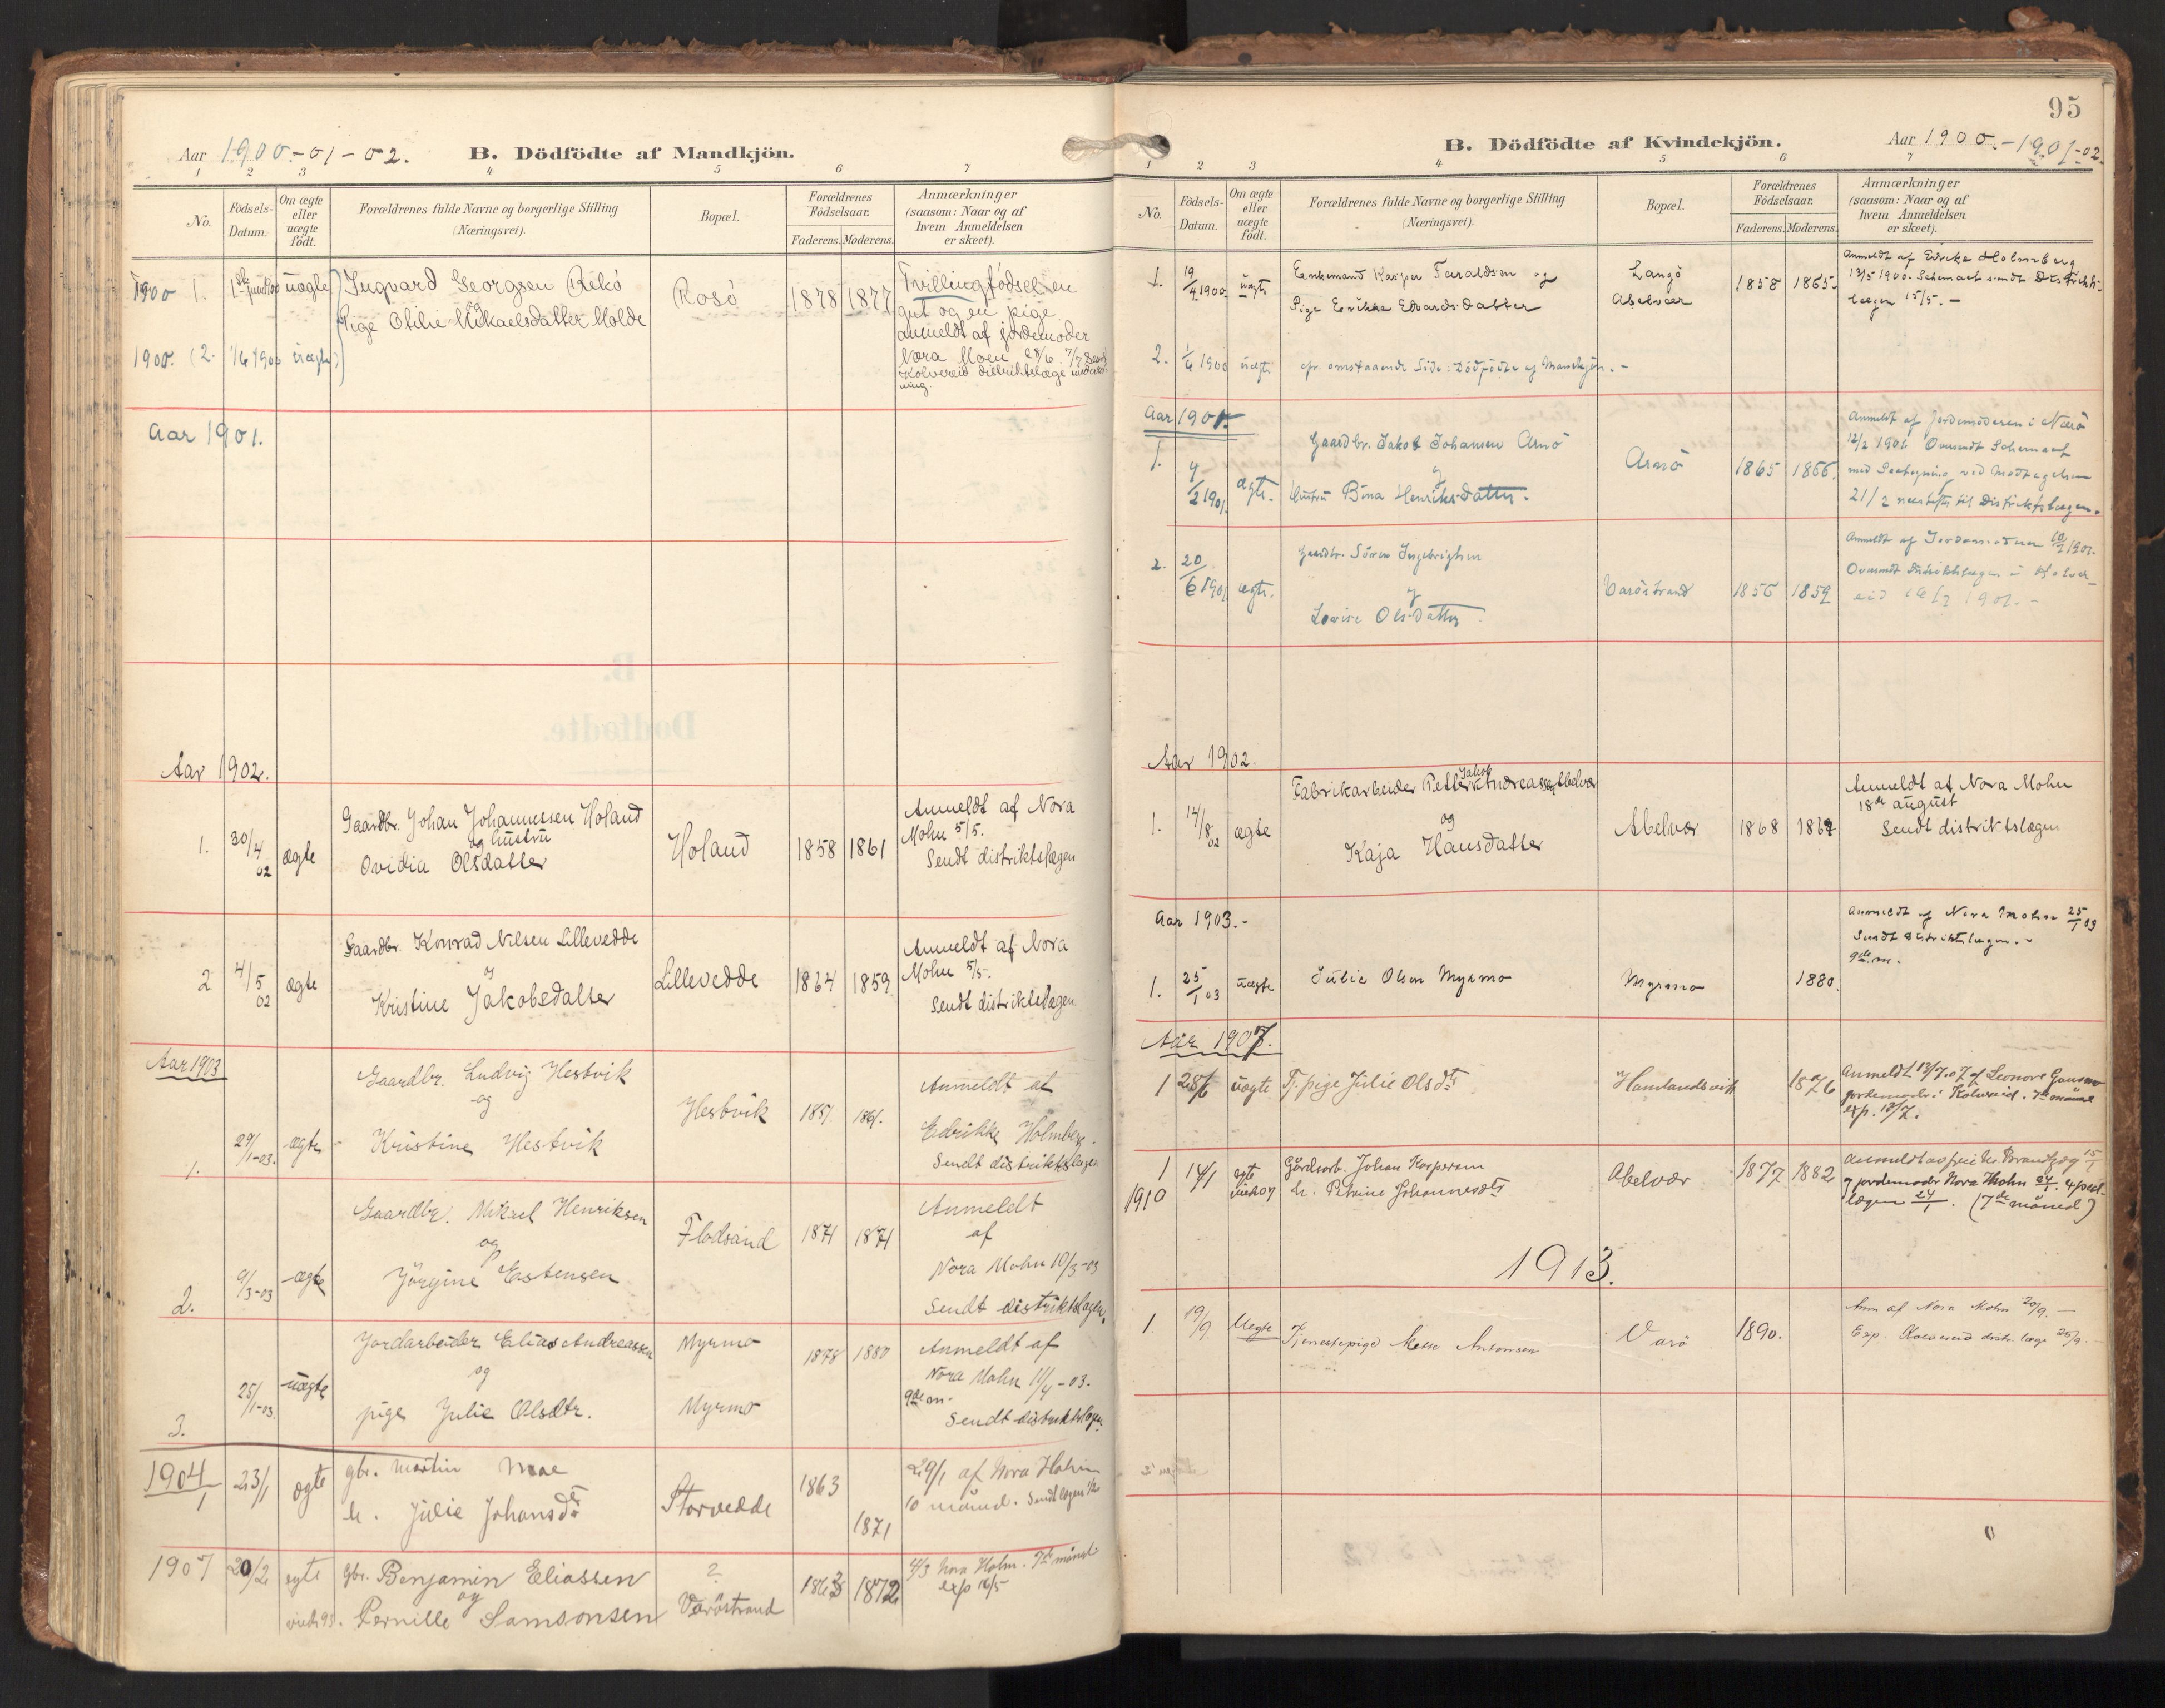 Aar 1900.-01-02.
B. Dödfödte af Mandkjön.
1 2 3 4 5 6 7
No.
Födsels-
Datum.
Om ægte
eller
uægte
födt.
Forældrenes fulde Navne og borgerlige Stilling
(Næringsvei).
Bopæl.
Forældrenes
Födselsaar.
Faderens. Moderens.
Anmærkninger
(saasom: Naar og af
hvem Anmeldelsen
er skeet).
1900 1. 1ste juni 1900 uægte Ingvard Georgsen Rosö 1878 1877 Tvillingfödsel en
og
Pige Otilie Mikaelsdatter Molde
gut og en pige
anmeldt af jordemoder
1900. (2. 1/6 1900 uægte) Nora Moen 28/6. 7/7 Sendt
Kolvereid distriktslæge
Aar 1901.
Aar 1902.
1. 30/4 02 ægte Gaardbr. Johan Johannessen Holand
og hustru
Ovidia Olsdatter
Holand 1858 1861
Anmeldt af Nora
Mohn 5/5.
Sendt distriktslægen
2 4/5 02 ægte Gaardbr. Konrad Nilsen Lillevedde
og
Kristine Jakobsdatter
Lillevedde 1864 1859
Anmeldt af Nora
Mohn 5/5.
Sendt distriktslægen
Aar 1903
1. 29/1-03. ægte Gaardbr. Ludvig Hestvik
og
Kristine Hestvik
Hestvik 1857. 1861.
Anmeldt af
Edrikke Holmberg.
Sendt distriktslægen
2. 9/3-03 ægte Gaardbr. Mikael Henriksen
og
Jörgine Estensen
Flodsand 1871 1871
Anmeldt
af
Nora Mohn 10/3-03
Sendt distriktslægen.
3. 25/1-03. uægte Jordarbeider Elias Andreassen
og
pige Julie Olsdtr.
Myrmo
Myrmo
1878 1880
Anmeldt af
Nora Mohn 11/4-03.
9de m.
Sendt distriktslægen
1904 1 23/1 ægte gbr. Martin Moe
h. Julie Johansdtr
Storvedde 1863 1871
29/1 af Nora Hohn
10 måned. Sendt lægen 1/2
1907 20/2 egte gbr. Benjamin Eliassen
og
viede 95. Pernille Samsonsen
?
Varöstrand 1863 1872
4/3 Nora Hohn. 7de månd.
exp 16/5
95
B. Dödfödte af Kvindekjön.
Aar 1900.-1901-02.
1 2 3 4 5 6 7
No.
Födsels-
Datum.
Om ægte
eller
uægte
födt.
Forældrenes fulde Navne og borgerlige Stilling
(Næringsvei).
Bopæl.
Forældrenes
Födselsaar.
Faderens. Moderens.
Anmærkninger
(saasom: Naar og af
hvem Anmeldelsen
er skeet).
1. 19/4 1900. uægte Enkemand Kasper Taraldsen og
Pige Enrikka Edvardsdatter
Langö
Abelvær
1858 1865.
Anmeldt af Edrika Holmberg
13/5 1900. Schemaet sendt Distrikts-
lægen 15/5. -
2. 1/6 1900 uægte cfr. omstaaende Side: Dödfödte af Mandkjön. -
Aar 1901.
1. 4/2 1901. ægte. Gaardbr. Jakob Johansen Arnö
og
Hustru Bina Henriksdatter.
Arnö 1865 1866.
Anmeldt af Jordemoderen i Nærö
12/2 1901. Oversendt Schemaet
med Paategning ved Modtagelsen
21/2 til Distriktslægen.
2. 20/6 1901. ægte. Gaardbr. Sören Ingebrigtsen
og
Lovise Olsdatter
Varöstrand 1856 1859
Anmeldt af Jordemoderen 10/7 1901.
Oversendt distriktslægen i Kolver-
eid 16/7 1901. -
Aar 1902.
1. 14/8 02 ægte Fabrikarbeider Petter Jakob Andreassen Abelvær
og
Kaja Hansdatter
Abelvær 1868 1867
Anmeldt af Nora Mohn
18de august
Sendt distriktslægen
Aar 1903.-
1. 25/1 03 uægte Julie Olsen Myrmo Myrmo 1880.
Anmeldt af Nora Mohn 25/1 03
Sendt distriktslægen. -
9de m.
Aar 1907.
1 28/6 uægte Tj. pige Julie Olsdtr Hamlandsvik 1876
Anmeldt 13/7.07 af Leonore Gausmo
jordemoder i Kolvereid. 7de måned
exp. 18/7.
1 1910 14/1 egte Gårdarb. Johan Kaspersen
h. Petrine Johannesdtr
Abelvær 1877 1882
15/1
og jordemoder Nora Mohn 24/1.
lægen 24/1. (7de måned)
1913.
1 19/9. Uegte Tjenestepige Antonsen Varö 1890.
Anm af Nora Mohn 20/9. -
Exp. Kolvereid distr. læge 25/9. -